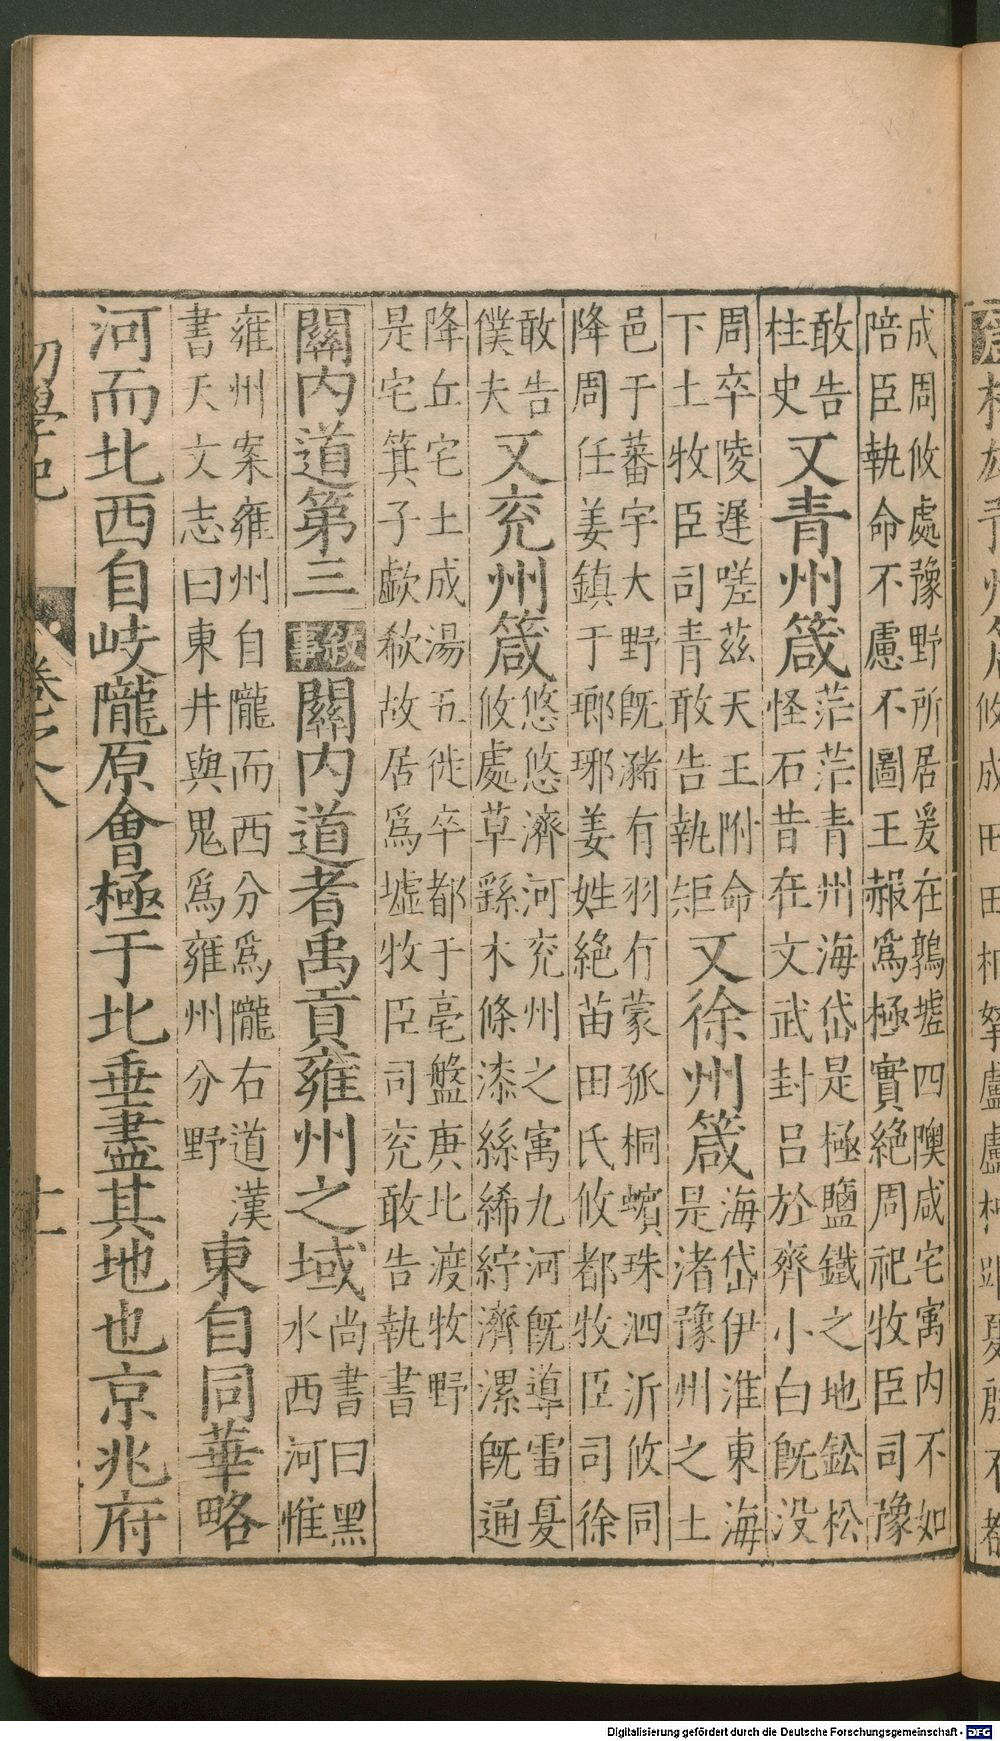 成周攸處豫野所居爰在鶉墟四隩咸宅寓内不如
陪臣執命不慮不圖王赧爲極實絶周祀牧臣司豫
敢告柱史 又青州箴 茫茫青州海岱是極鹽鐵之地鈆松
怪石昔在文武封呂於齊小白旣没
周卒陵遲嗟茲天王附命
下土牧臣司青敢告執矩 又徐州箴 海岱伊淮東海
是渚豫州之土
邑于蕃宇大野旣潴有羽有蒙孤桐蠙珠泗沂攸同
降周任姜鎮于瑯琊姜姓絶苗田氏攸都牧臣司徐
敢告僕夫 又兖州箴 悠悠濟河兖州之寓九河旣導雷夏
攸處草繇木條漆絲絺紵濟漯旣通
降丘宅土成湯五徙卒都于亳盤庚北渡牧野
是宅箕子歔欷故居爲墟牧臣司兖敢告執書
關内道第三 敘事 關内道者禹貢雍州之域 尚書曰黑
水西河惟
雍州案雍州自隴而西分爲隴右道漢
書天文志曰東井與鬼爲雍州分野 東自同華略
河而北西自岐隴原會極于北垂盡其地也京兆府
初學記 卷之八 十一
Digitalisierung gefördert durch die Deutsche Forschungsgemeinschaft - DFG